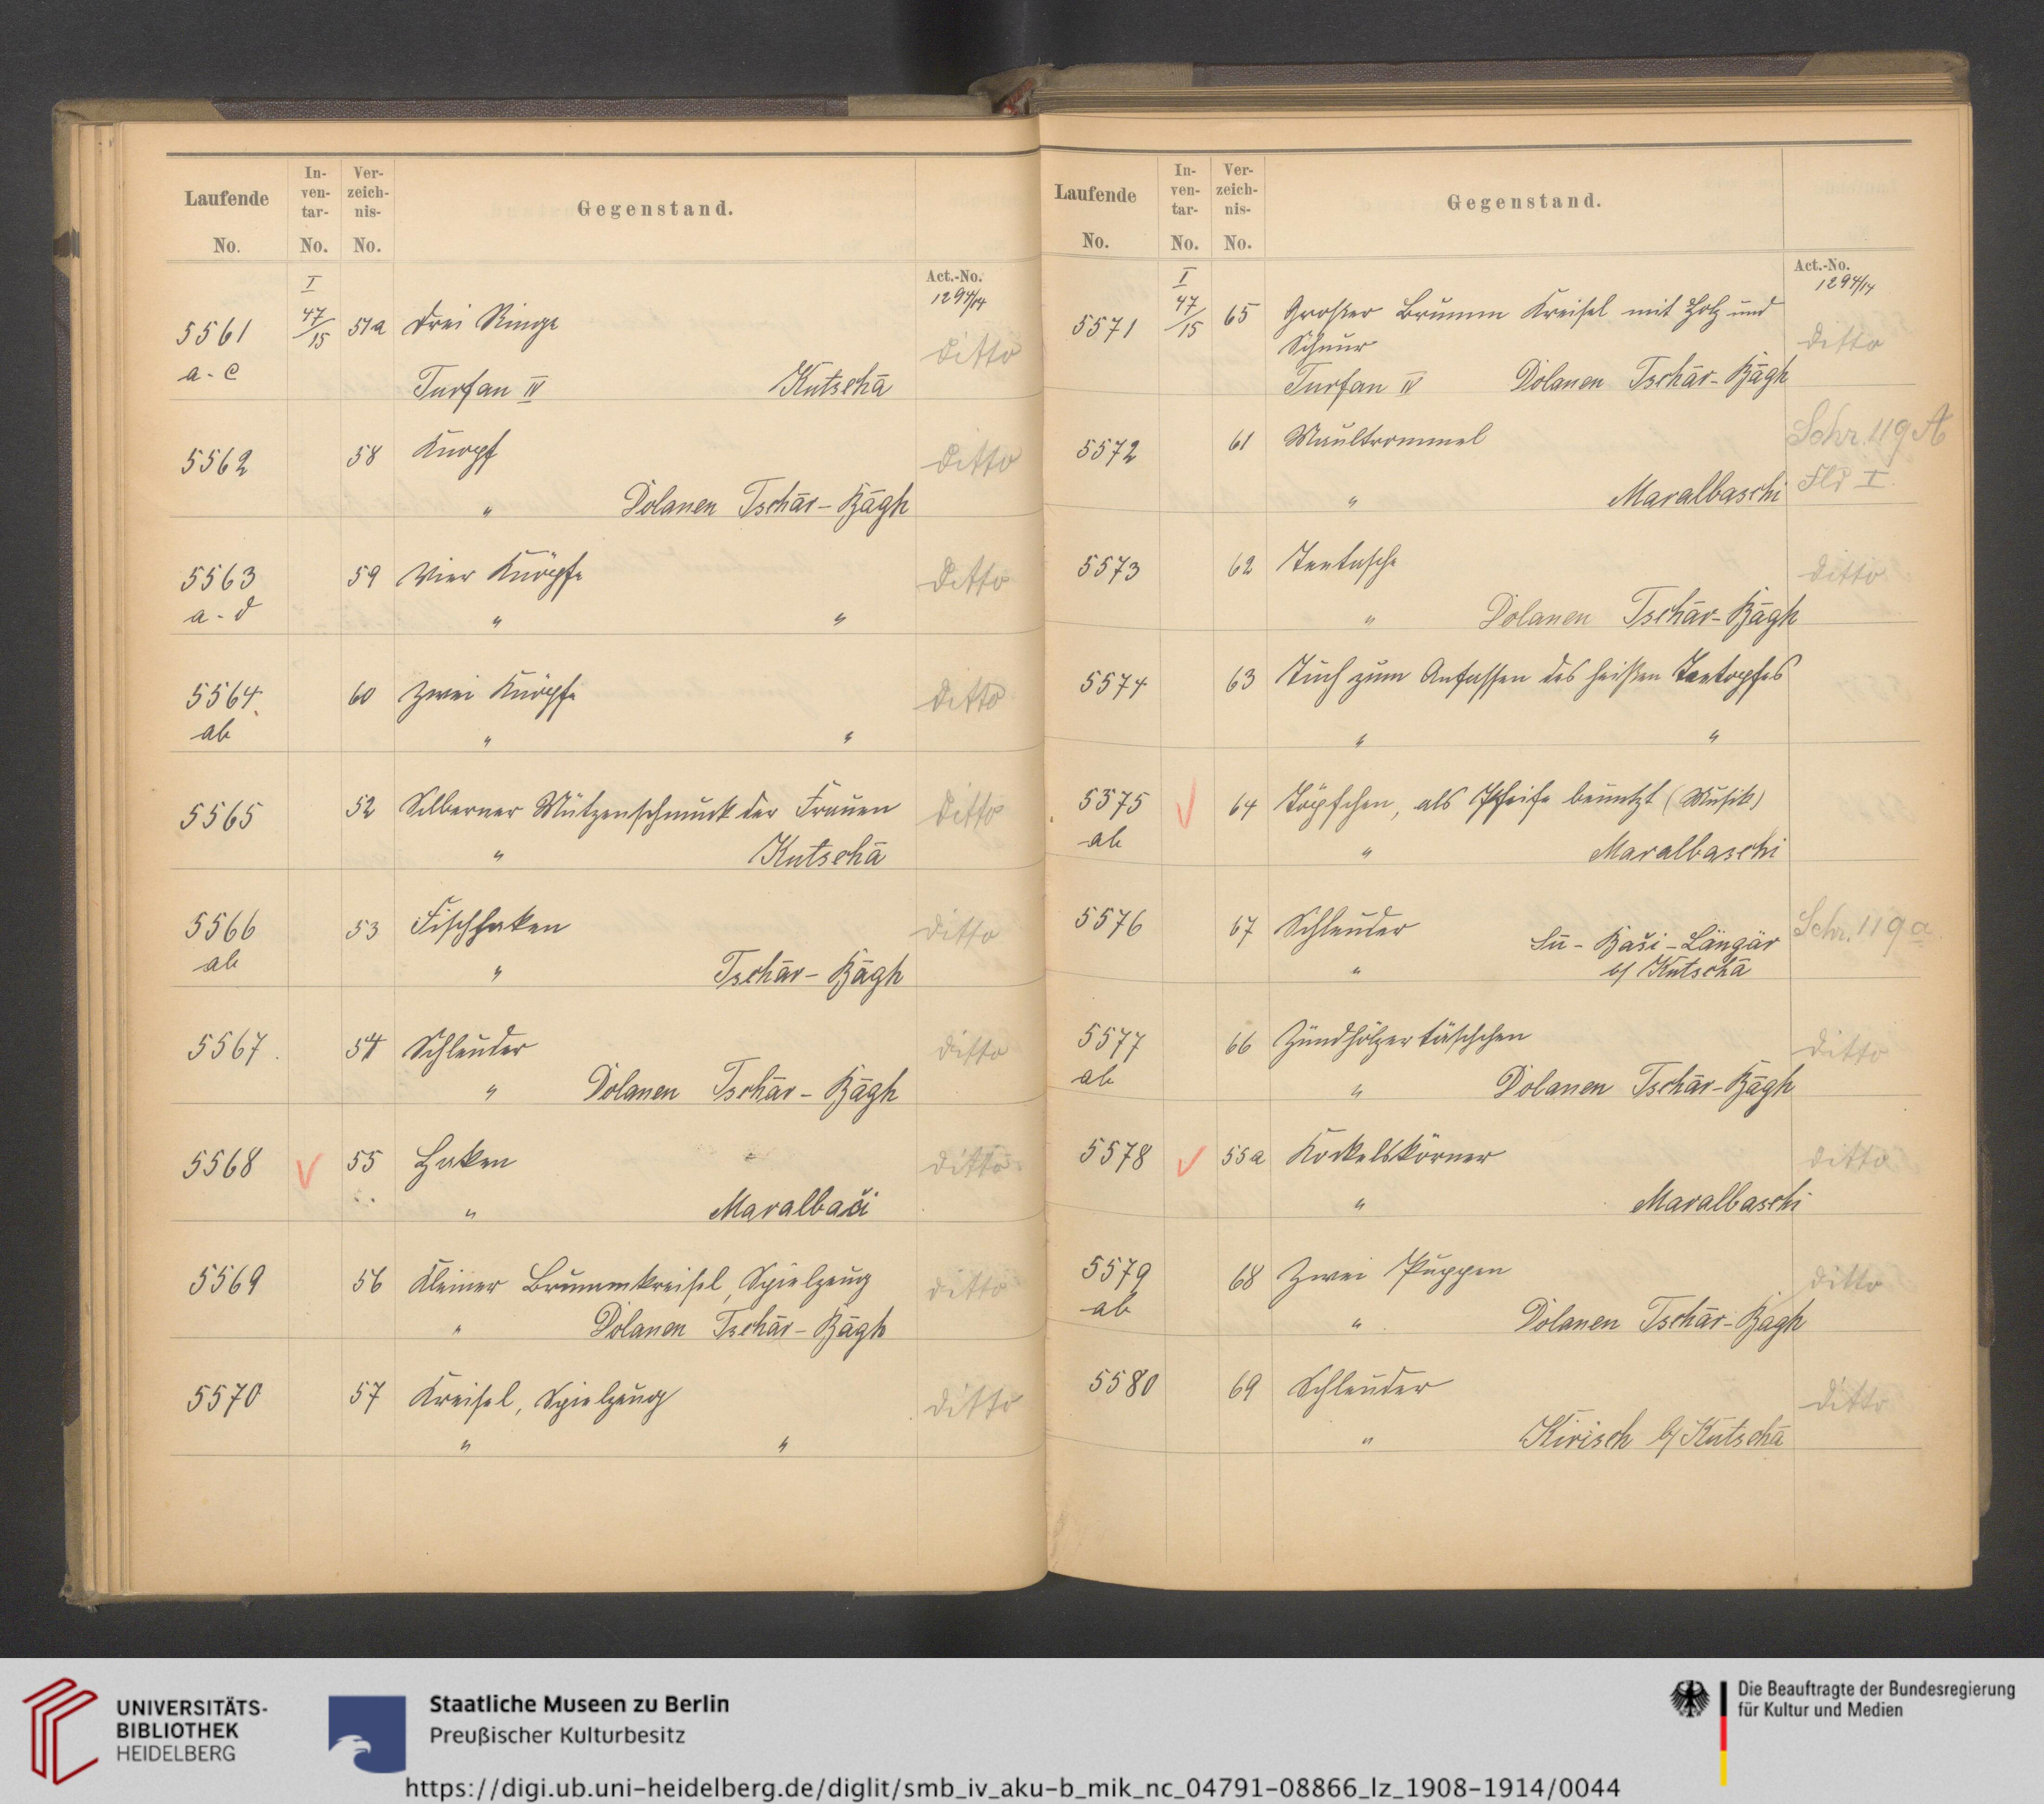 Laufende
No.
In-
ven-
tar-
No.
Ver-
zeich-
nis-
No.
Gegenstand.
I
Act.-No.
1294/14
5561
a-c
47/15
51a
Drei Ringe
ditto
Turfan IV Kutschā
5562
58
Knopf
ditto
" Dolanen Tschār-Bāgh
5563
a-d
59
Vier Knöpfe
ditto
" "
5564
ab
60
Zwei Knöpfe
ditto
" "
5565
52
Silberner Mützenschmuck der Frauen
ditto
" Kutschā
5566
ab
53
Fischhaken
ditto
" Tschār-Bāgh
5567.
54
Schleuder
ditto
" Dolanen Tschār-Bāgh
5568
55
Haken
ditto
" Maralbaši
5569
56
Kleiner Brummkreisel, Spielzeug
ditto
" Dolanen Tschār-Bāgh
5570
57
Kreisel, Spielzeug
ditto
" "
Laufende
No.
In-
ven-
tar-
No.
Ver-
zeich-
nis-
No.
Gegenstand.
I
Act.-No.
1294/14
5571
47/15
65
Grosser Brumm Kreisel mit Holz und
Schnur
ditto
Turfan IV Dolanen Tschār-Bāgh
5572
61
Maultrommel
Schr. 119 A
" Maralbaschi
5573
62
Teetasche
ditto
" Dolanen Tschār-Bāgh
5574
63
Tuch zum Anfassen des heißen Teetopfes
" "
5575
ab
64
Töpfchen, als Pfeife benutzt (Musik)
" Maralbaschi
5576
67
Schleuder
Schr. 119 a
Sū-Baši-Längär
" b/ Kutschā
5577
ab
66
Zündhölzertäschchen
ditto
" Dolanen Tschār-Bāgh
5578
55a
Kockelskörner
ditto
" Maralbaschi
5579
ab
68
Zwei Puppen
ditto
" Dolanen Tschār-Bāgh
5580
69
Schleuder
ditto
" Kirisch b/ Kutschā
UNIVERSITÄTS-
BIBLIOTHEK
HEIDELBERG
Staatliche Museen zu Berlin
Preußischer Kulturbesitz
Die Beauftragte der Bundesregierung
für Kultur und Medien
https://digi.ub.uni-heidelberg.de/diglit/smb_iv_aku-b_mik_nc_04791-08866_lz_1908-1914/0044